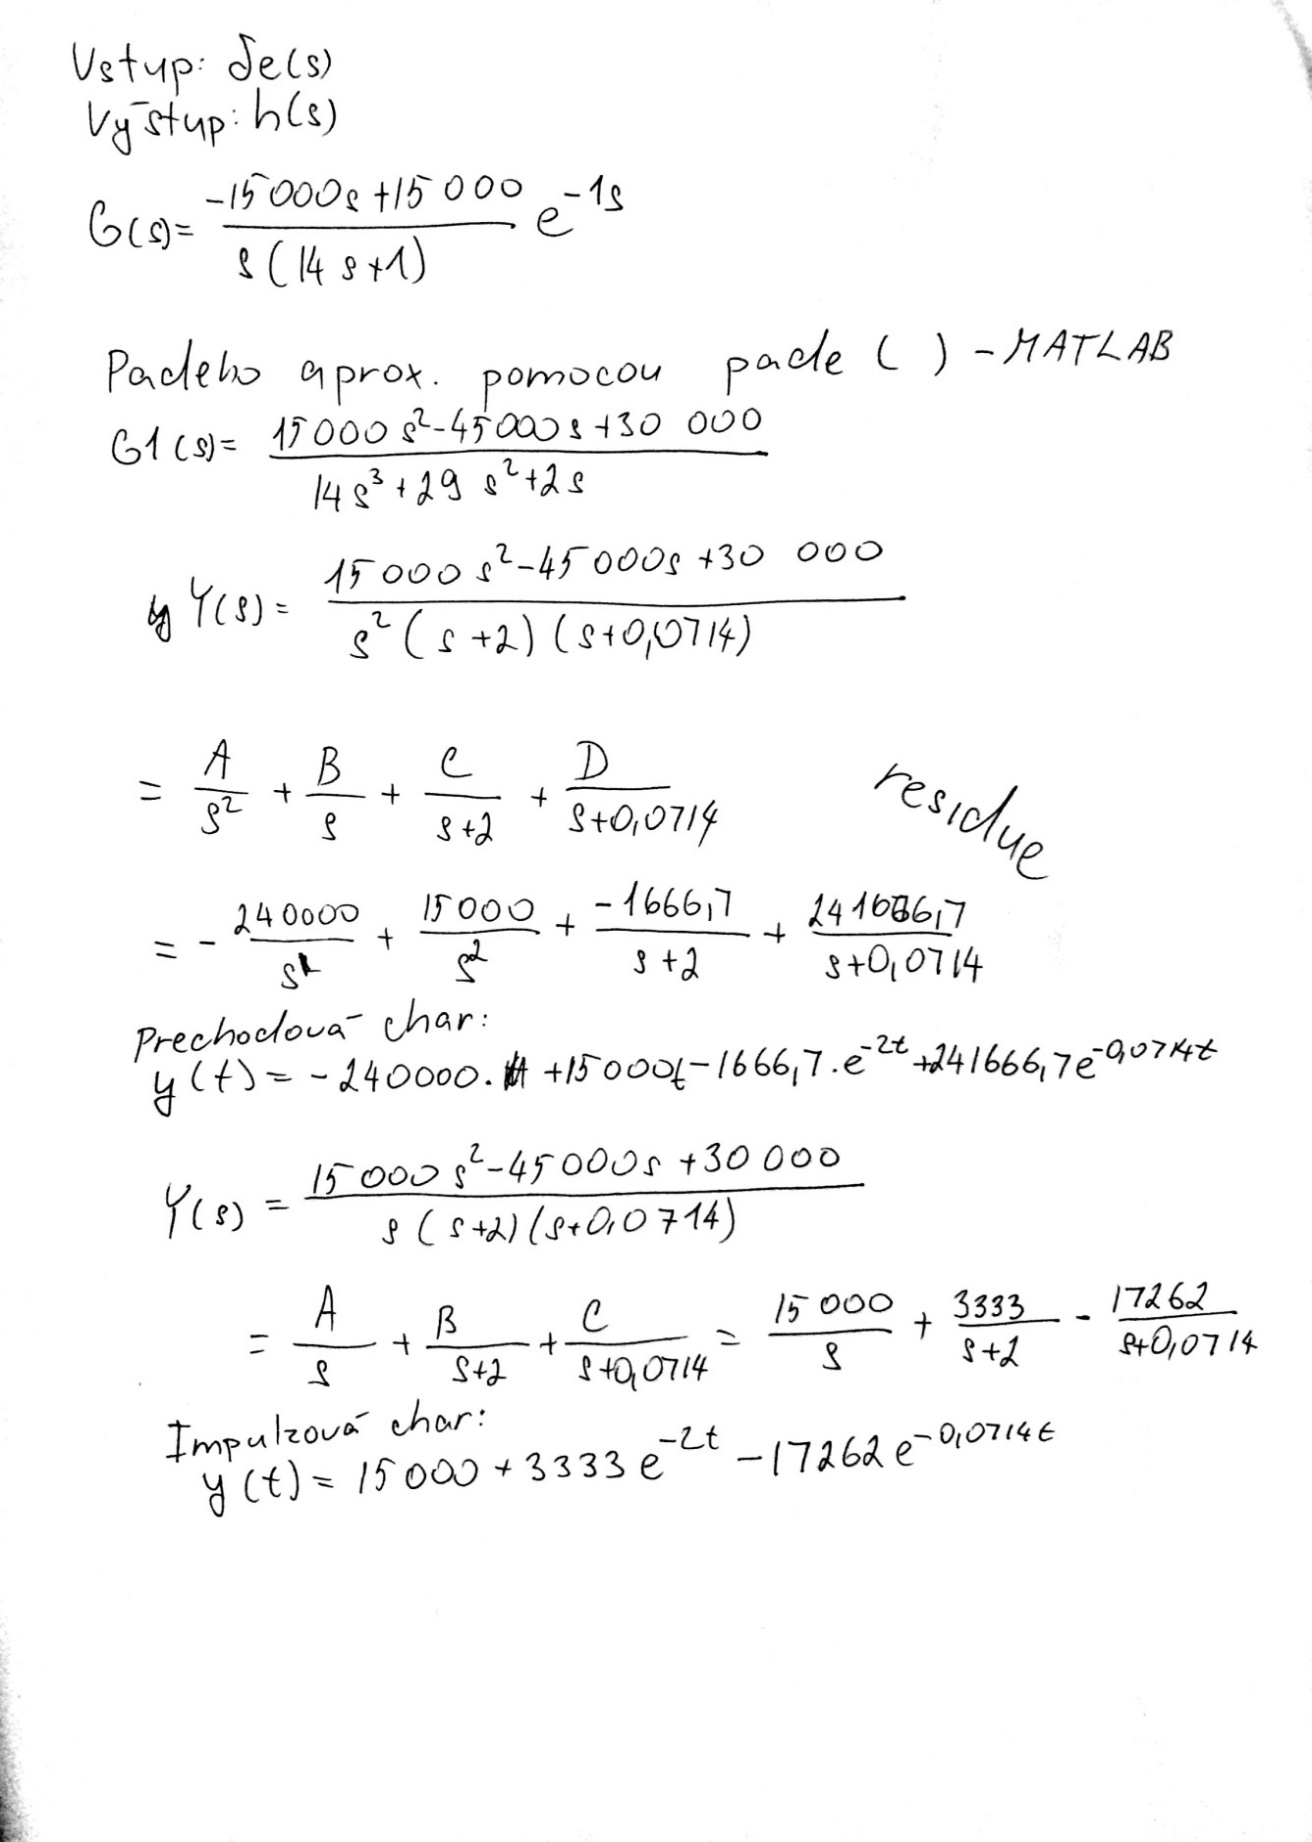 Vstup: δe(s)
Výstup: h(s)
G(s)= (-15 000s +15 000)/(s(14s+1)) e^{-1s}
Padeho aprox. pomocou pade ( ) - MATLAB
G1(s)= (15000 s²-45000s+30 000)/(14s³+29s²+2s)
Y(s)= (15000 s²-45000s+30 000)/(s²(s+2)(s+0,0714))
= A/s² + B/s + C/(s+2) + D/(s+0,0714) residue
= - 240000/s + 15000/s² + -1666,7/(s+2) + 241666,7/(s+0,0714)
Prechodová char:
y(t)= -240000. +15000t-1666,7.e^{-2t}+241666,7e^{-0,0714t}
Y(s) = (15000 s²-45000s+30 000)/(s(s+2)(s+0,0714))
= A/s + B/(s+2) + C/(s+0,0714) = 15 000/s + 3333/(s+2) - 17262/(s+0,0714)
Impulzová char:
y(t)= 15000+3333e^{-2t} -17262e^{-0,0714t}